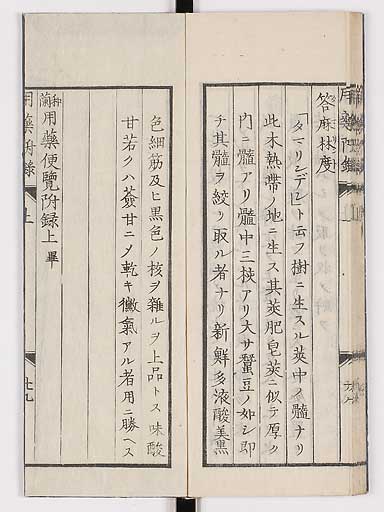 答麻林度
「タマリンデン」ト云フ樹ニ生スル莢中ノ髓ナリ
此木熱帶ノ地ニ生ス其莢肥皂莢ニ似テ厚ク
内ニ髓アリ髓中三核アリ大サ蠶豆ノ如シ即
チ其髓ヲ絞リ取ル者ナリ新鮮多液酸美黒
色細筋及ヒ黒色ノ核ヲ雜ルヲ上品トス味酸
甘若クハ薟甘ニメ乾キ黴氣アル者用ニ勝ヘス
和蘭用藥便覽附録上畢
用藥附録
上